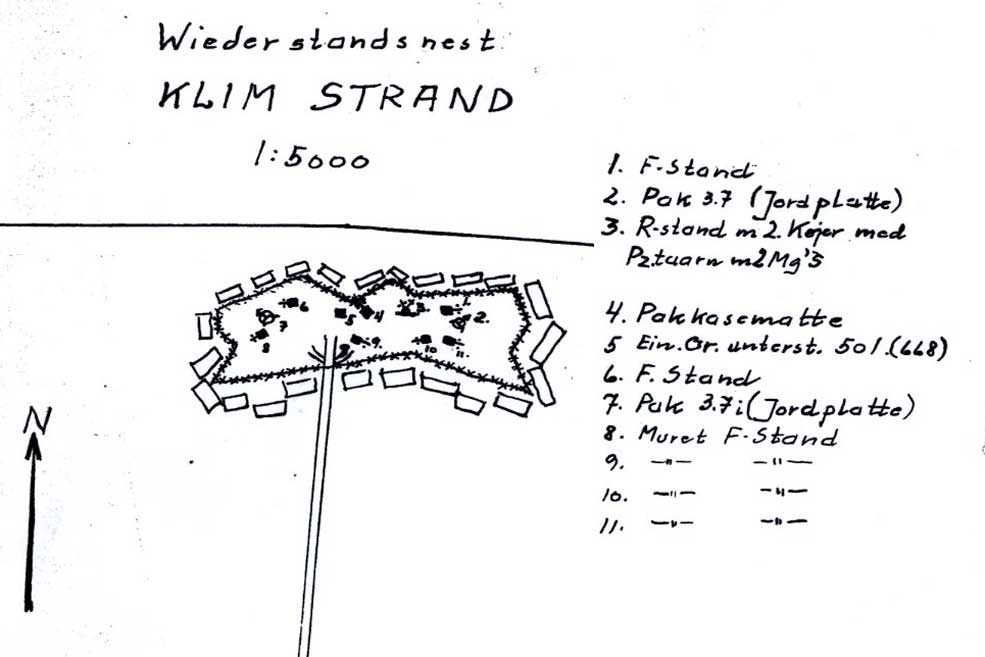 Wiederstandsnest
KLIM STRAND
1:5000
1. F-Stand
2. Pak 3.7 (Jordplatte)
3. R-stand m 2. Køjer med
Pz.taarn m 2 Mg's
4. Pakkasematte
5 Ein.Gr.unterst. 501.(668)
6. F. Stand
7. Pak 3.7i (Jordplatte)
8. Muret F-Stand
9. —"— —"—
10. —"— —"—
11. —"— —"—
N
6
7
8
5
4
3.
1.
2.
9.
10
11.